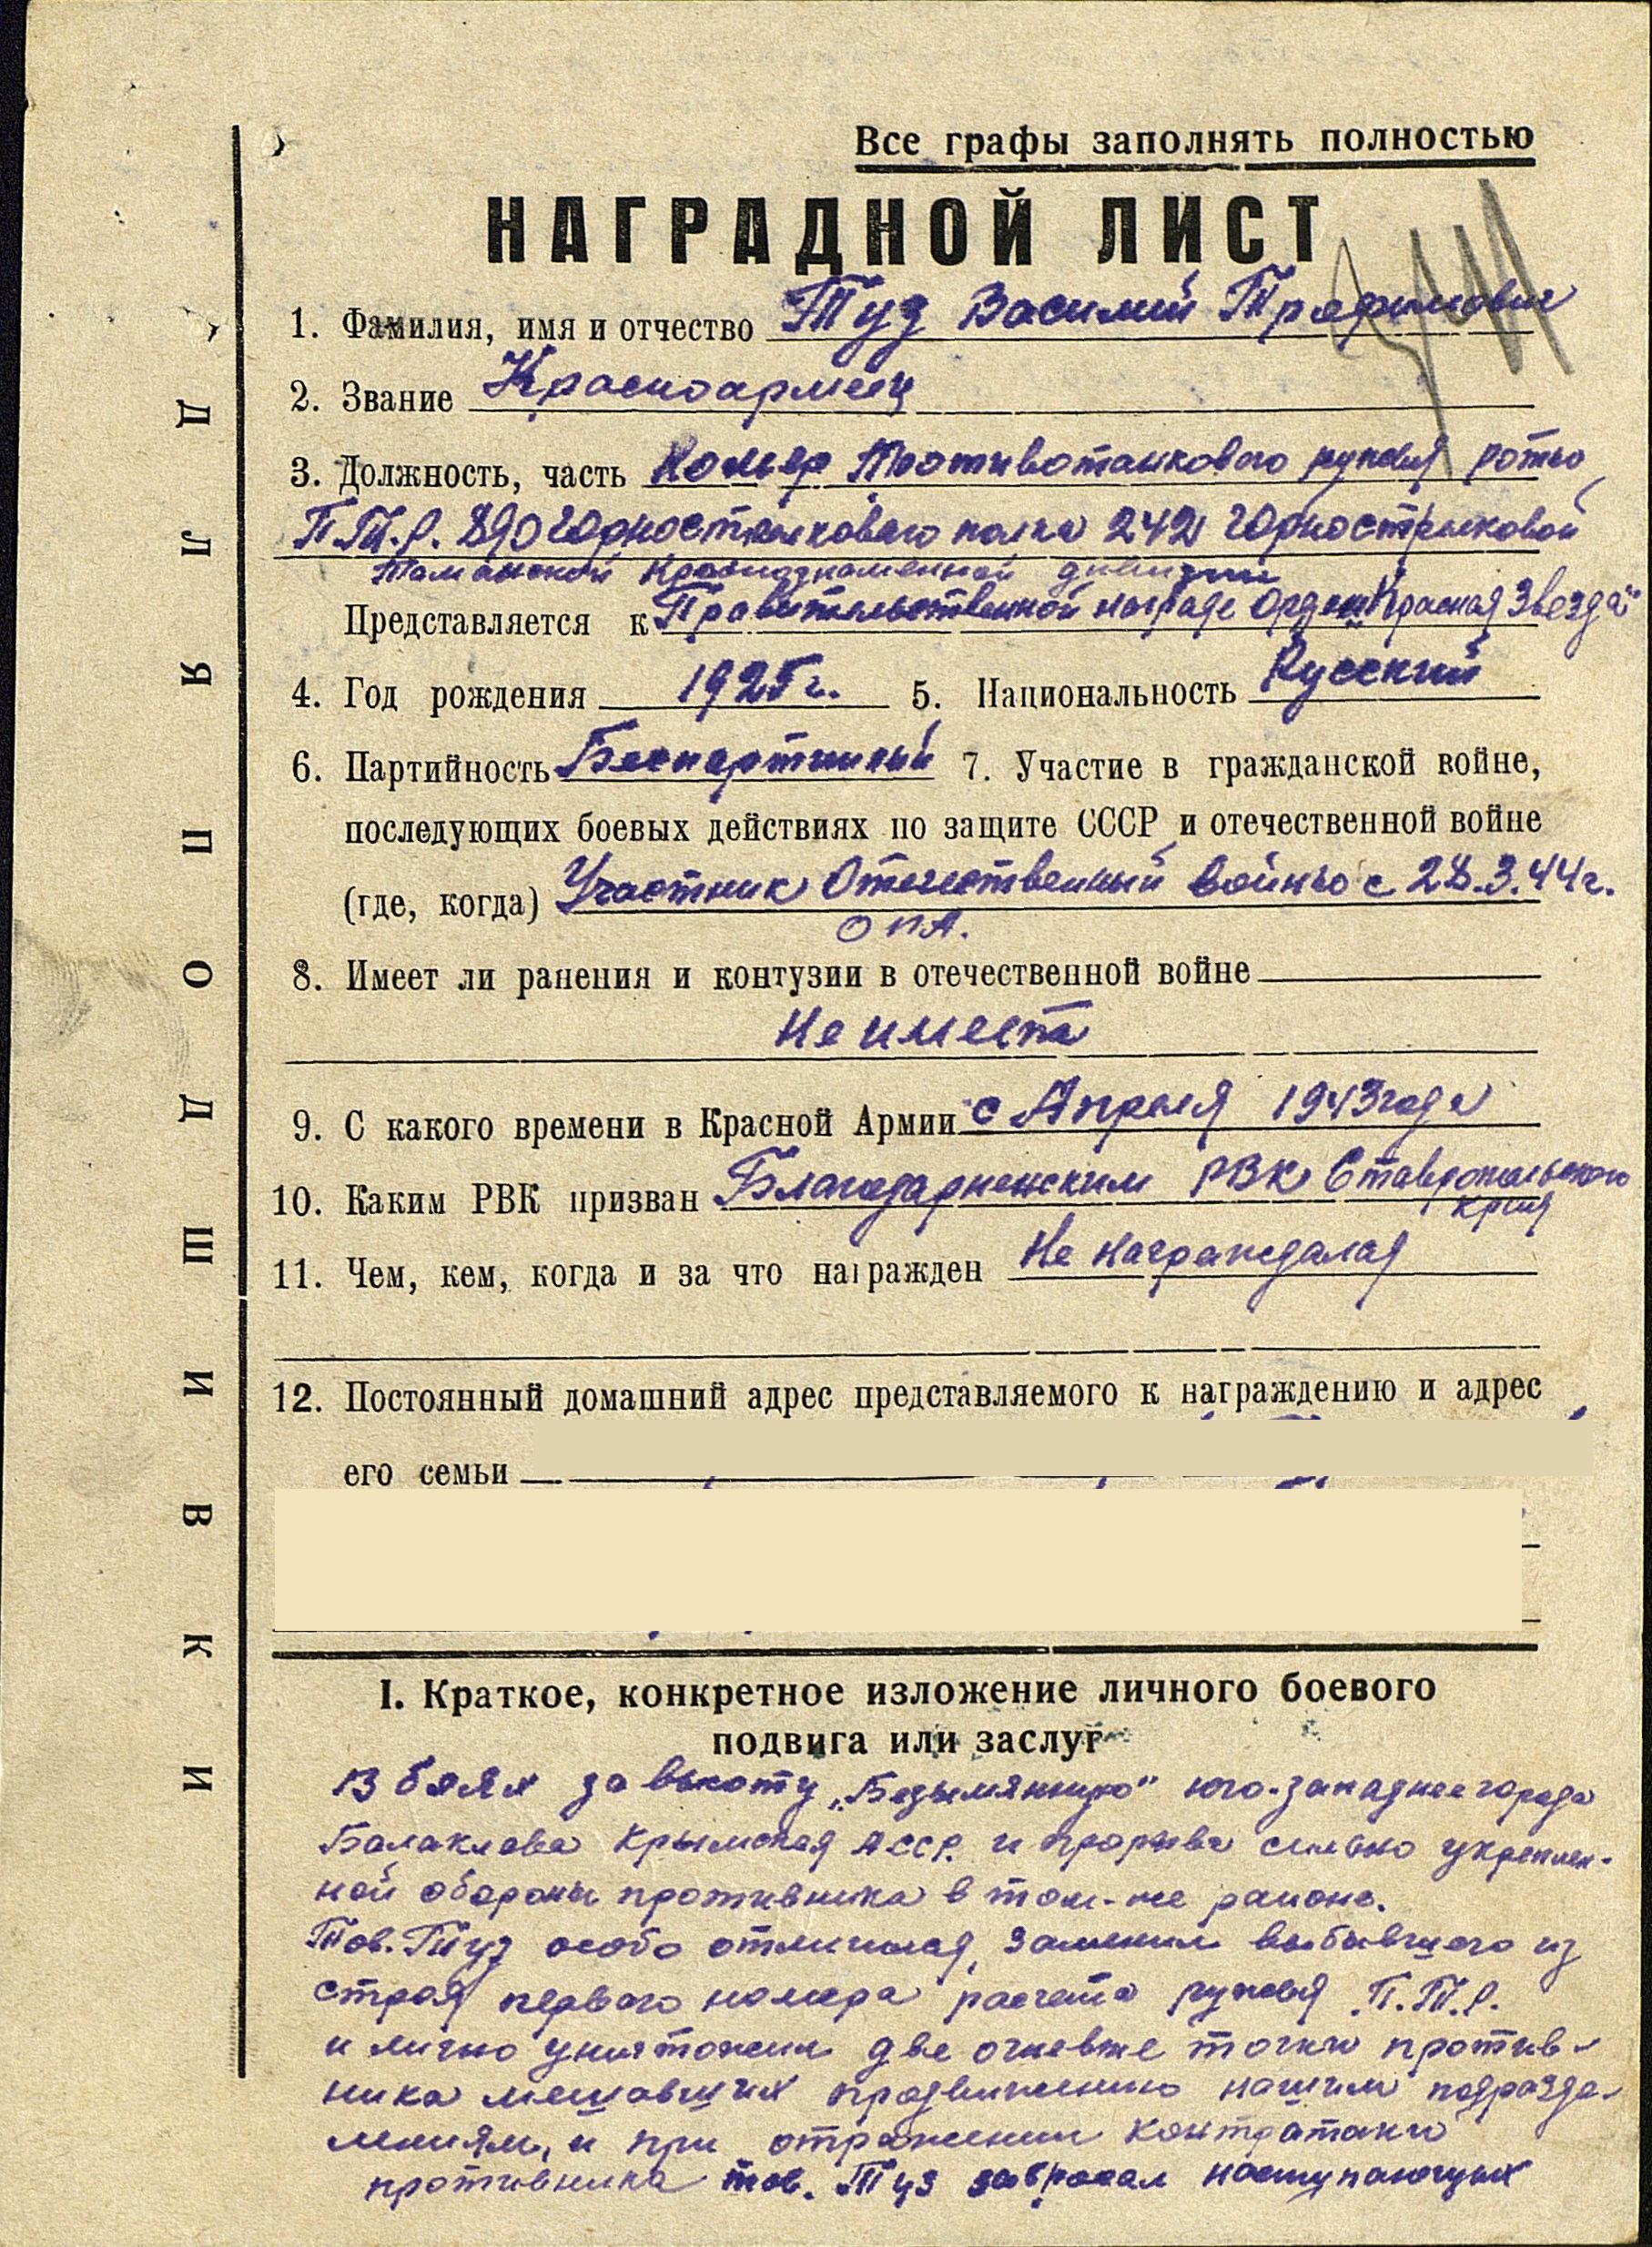 Все графы заполнять полностью
НАГРАДНОЙ ЛИСТ
1. Фамилия, имя и отчество Туз Василий Трофимович
2. Звание Красноармеец
3. Должность, часть Номер Противотанкового ружья роты
П.Т.Р. 890 Горнострелкового полка 242 Горнострелковой
Таманской Краснознаменной дивизии
Представляется к Правительственной награде Орден Красная Звезда"
4. Год рождения 1925 г. 5. Национальность Русский
6. Партийность Беспартийный 7. Участие в гражданской войне,
последующих боевых действиях по защите СССР и отечественной войне
(где, когда) Участник Отечественный войны с 28.3.44 г.
ОПА.
8. Имеет ли ранения и контузии в отечественной войне
Не имеет
9. С какого времени в Красной Армии с Апреля 1943 года
10. Каким РВК призван Благодарненским РВК Ставропольского
края
11. Чем, кем, когда и за что награжден Не награждался
12. Постоянный домашний адрес представляемого к награждению и адрес
его семьи
I. Краткое, конкретное изложение личного боевого
подвига или заслуг
В боях за высоту „Безымянную" юго-западнее города
Балаклава Крымская АССР. и прорыве сильно укреплен-
ной обороны противника в том-же районе.
Тов. Туз особо отличился, заменил выбывшего из
строя первого номера расчета ружья П.Т.Р.
и лично уничтожил две огневые точки против-
ника мешавших продвижению нашим подразде-
лениям, и при отражении контратаки
противника тов. Туз забросал наступающих
ДЛЯ ПОДШИВКИ